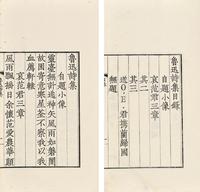 魯迅詩集目錄
自題小像
哀范君三章
其二
其三
送O.E.君携蘭歸國
無題
魯迅詩集
自題小像
靈臺無計逃神矢風雨如磐闇
故園寄意寒星荃不察我以我
血薦軒轅
哀范君三章
風雨飄搖日余懷范愛農華顛